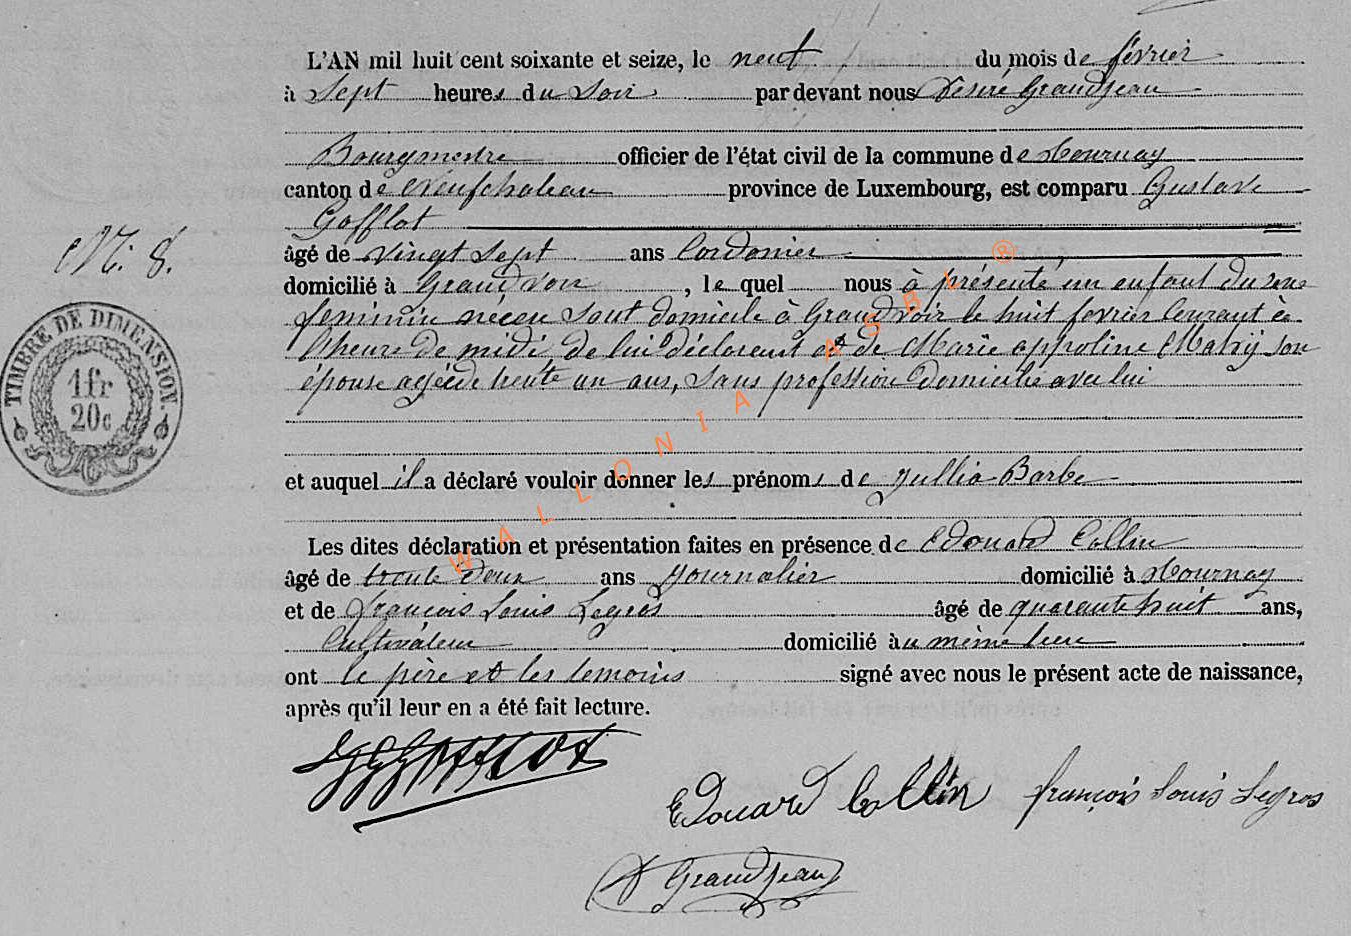 L'AN mil huit cent soixante et seize, le neuf du mois de février
à Sept heures du Soir par devant nous Désiré Grandjean
Bourgmestre officier de l'état civil de la commune de Tournay
canton de Neufchateau province de Luxembourg, est comparu Gustave
Gofflot
âgé de vingt sept ans Cordonier
N: 8.
domicilié à Grandvoir, le quel nous à présenté un enfant du sexe
feminin né son domicile à Grandvoir le huit fevrier Courant à
l'heure de midi, de lui déclarant et de Marie appoline son
épouse agée de trente un ans, Sans profession Domiciliée avec lui
TIMBRE DE DIMENSION.
1fr
20c
et auquel il a déclaré vouloir donner les prénoms de Jullia Barbe
Les dites déclaration et présentation faites en présence de Edouard Collin
âgé de trente Deux ans Journalier domicilié à Tournay
et de François Louis Legros âgé de quarante huit ans,
Cultivateur domicilié au même lieu
ont le père et les temoins signé avec nous le présent acte de naissance,
après qu'il leur en a été fait lecture.
WALLONIA ASBL ®
Gofflot
Edouard Collin françois Louis Legros
D Grandjean